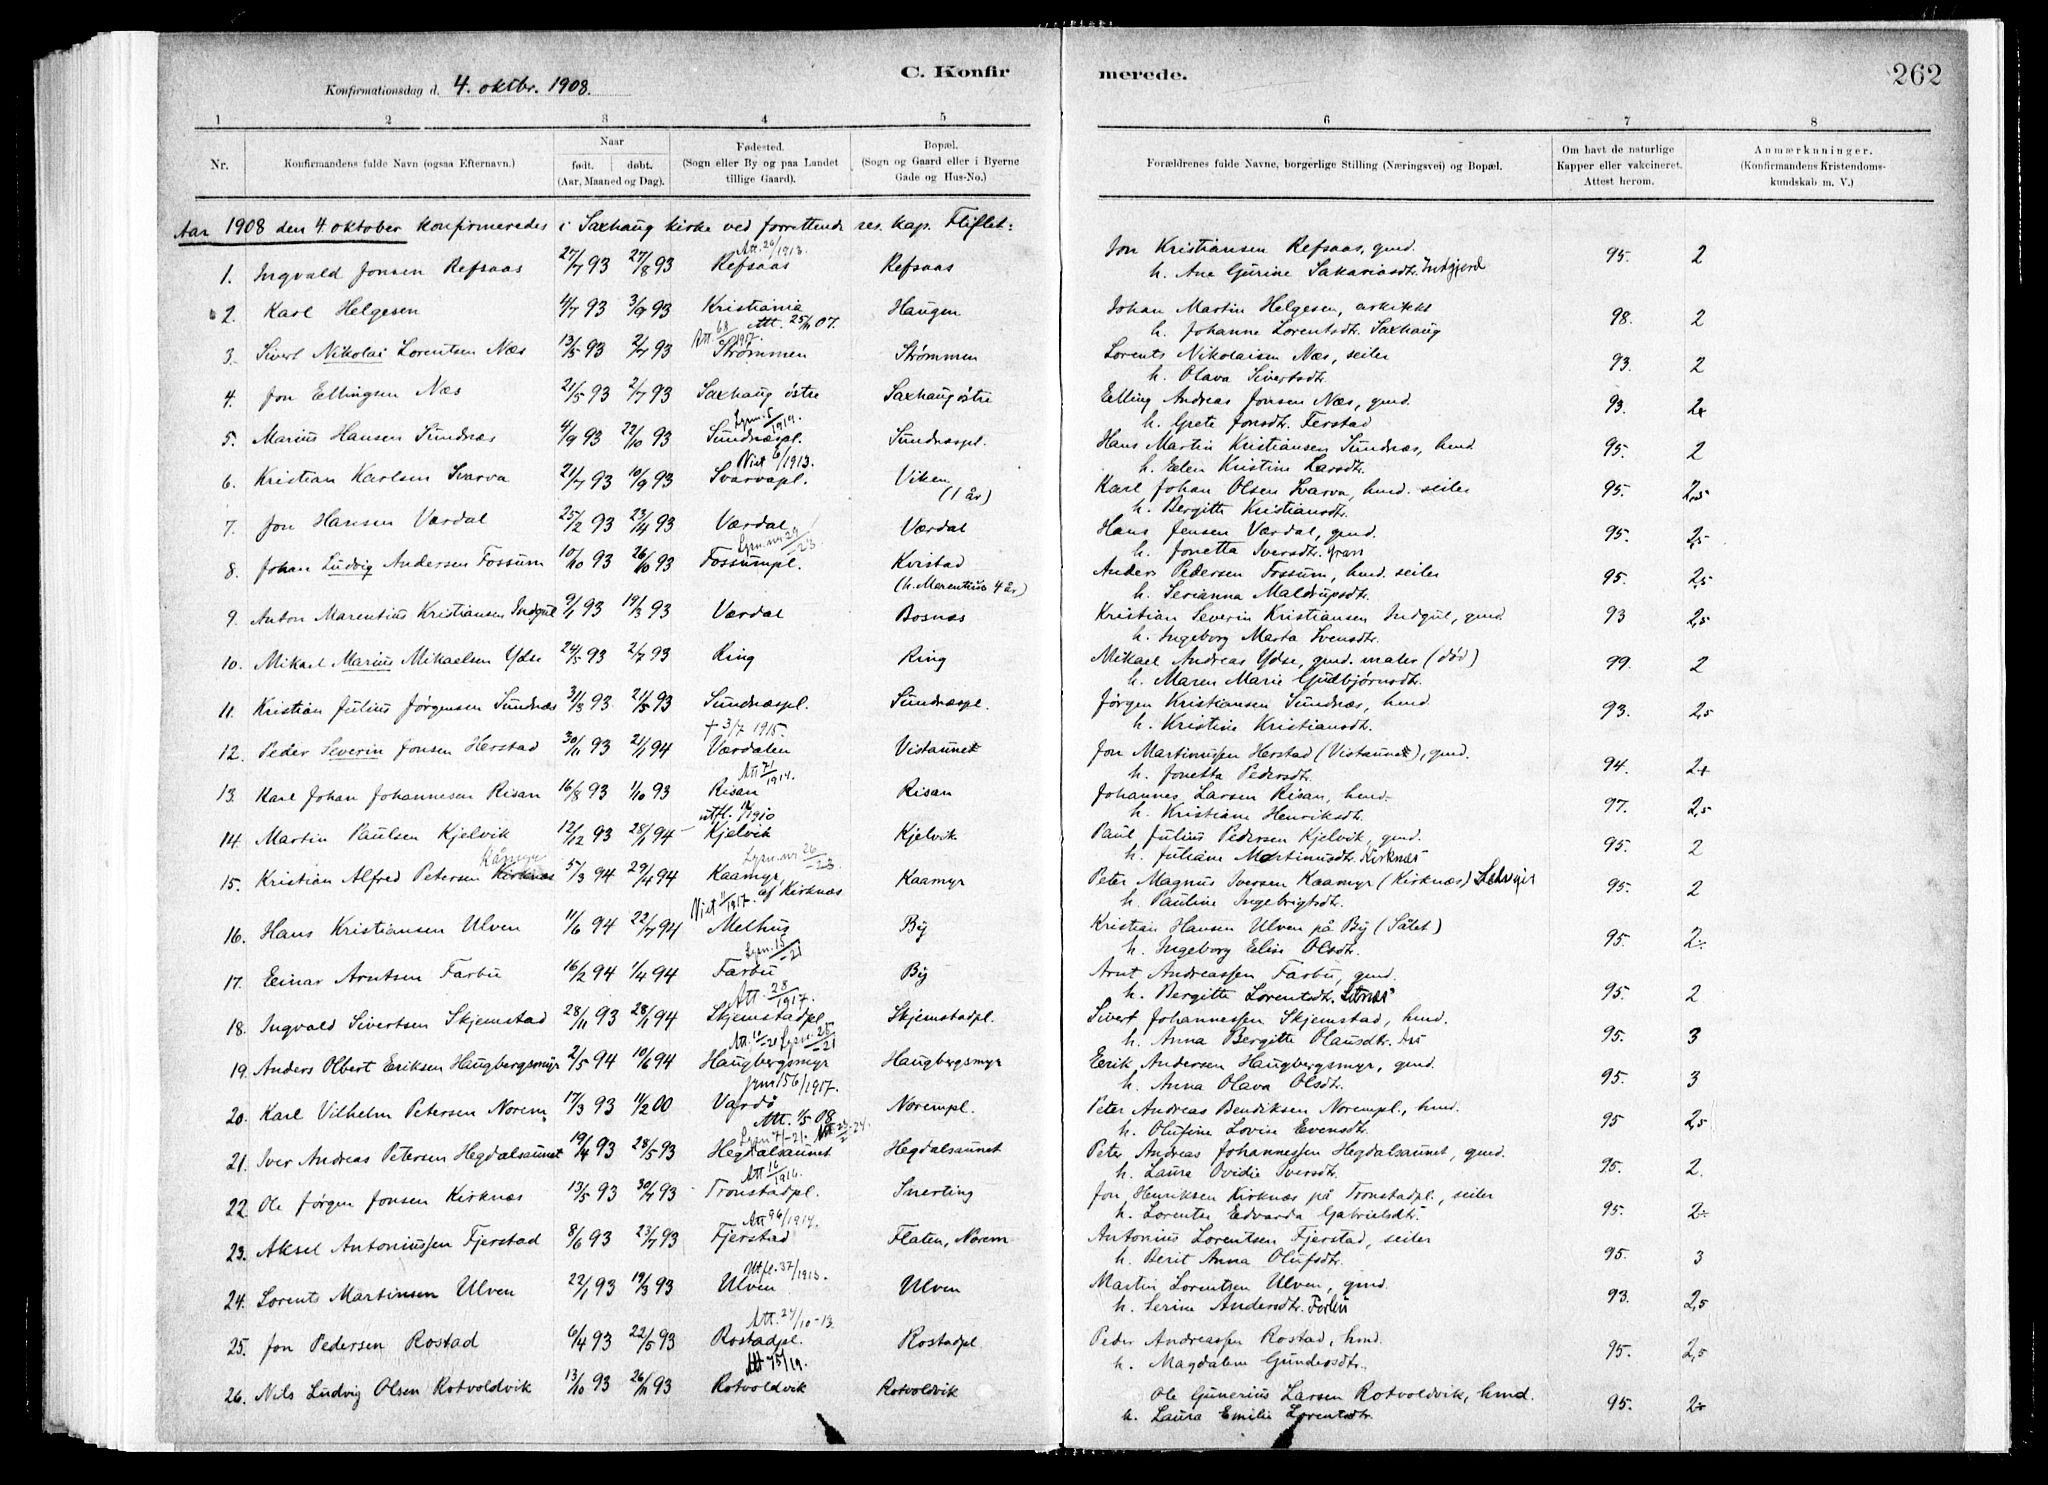 C. Konfirmerede.
262
Konfirmationsdag d. 4. oktbr. 1908.
1 2 3 4 5 6 7 8
Nr.
Konfirmandens fulde Navn (ogsaa Efternavn.)
Naar
født. døbt.
(Aar, Maaned og Dag).
Fødested.
(Sogn eller By og paa Landet
tillige Gaard).
Bopæl.
(Sogn og Gaard eller i Byerne
Gade og Hus-No.)
Forældrenes fulde Navne, borgerlige Stilling (Næringsvei) og Bopæl.
Om havt de naturlige
Kopper eller vakcineret.
Attest herom.
Anmærkninger.
(Konfirmandens Kristendoms-
kundskab m. V.)
Aar 1908 den 4. oktober konfirmeredes i Saxhaug kirke ved forrettende res. kap. Fliflet:
Att. 26/1913.
1. Ingvald Jonsen Refsaas 27/7 93 27/8 93 Refsaas Refsaas Jon Kristiansen Refsaas, gmd. 95. 2
h. Ane Gurine Sakariasdtr. Indgjerd
2. Karl Helgesen 4/7 93 3/9 93 Kristiania Haugen Johan Martin Helgesen, arkitekt 98. 2
Att. 25/11 07.
h. Johanne Lorentsdtr. Saxhaug
Att. 68/1917.
3. Sivert Nikolai Lorentsen Næs 13/5 93 2/7 93 Strømmen Strømmen Lorents Nikolaisen Næs, seiler 93. 2
h. Olava Sivertsdtr.
4. Jon Ellingsen Næs 21/5 93 2/7 93 Saxhaug østre Saxhaug østre Elling Andreas Jonsen Næs, gmd. 93. 2+
h. Grete Jonsdtr. Ferstad
Lysn. 5/1919.
5. Marius Hansen Sundnæs 4/9 93 22/10 93 Sundnæspl. Sundnæspl. Hans Martin Kristiansen Sundnæs, hmd. 95. 2
h. Elen Kristine Larsdtr.
Viet 6/1913.
6. Kristian Karlsen Svarva 21/7 93 10/9 93 Svarvapl. Viken (1 år) Karl Johan Olsen Svarva, hmd. seiler 95. 2,5
h. Bergitte Kristiansdtr.
7. Jon Hansen Værdal 25/2 93 23/4 93 Værdal Værdal Hans Jensen Værdal, gmd. 95. 2,5
h. Jonetta Iversdtr. Gran
Lysn. nr. 29/-23
8. Johan Ludvig Andersen Fossum 10/10 93 26/10 93 Fossumpl. Kvistad Anders Pedersen Fossum, hmd. seiler 95. 2,5
(h. Marentius 4 år)
h. Serianna Maldrupsdtr.
9. Anton Marentius Kristiansen Indgul 9/1 93 19/3 93 Værdal Bosnæs Kristian Severin Kristiansen Indgul, gmd. 93 2,5
h. Ingeborg Marta Svensdtr.
10. Mikael Marius Mikaelsen Ydse 24/5 93 2/7 93 Ring Ring Mikael Andreas Ydse, gmd. maler (død) 99. 2
h. Maren Marie Gudbjørnsdtr.
11. Kristian Julius Jørgensen Sundnæs 31/3 93 21/5 93 Sundnæspl. Sundnæspl. Jørgen Kristiansen Sundnæs, hmd. 93. 2,5
h. Kristine Kristiansdtr.
+ 3/7 1915.
12. Peder Severin Jonsen Herstad 30/11 93 21/1 94 Værdalen Vistaunet Jon Martinussen Herstad (Vistaunet), gmd. 94. 2+
h. Jonetta Pedersdtr.
Att 71/1914.
13. Karl Johan Johannesen Risan 16/8 93 1/10 93 Risan Risan Johannes Larsen Risan, hmd. 97. 2,5
h. Kristiane Henriksdtr.
utfl. 12/1910
14. Martin Paulsen Kjelvik 12/12 93 28/1 94 Kjelvik Kjelvik Paul Julius Pedersen Kjelvik, gmd. 95. 2
h. Juliane Martinusdtr. Kirknæs
Kåmyr Lysn. nr. 26/-23.
15. Kristian Alfred Petersen Kirknæs 5/3 94 29/4 94 Kaamyr, af Kirknæs Kaamyr Peter Magnus Iversen Kaamyr (Kirknæs) 95. 2
h. Pauline Ingebrigtsdtr.
Viet 11/1917.
16. Hans Kristiansen Ulven 11/6 94 22/7 94 Melhus By Kristian Hansen Ulven på By (Sålet) 95. 2÷
h. Ingeborg Elise Olsdtr.
Lysn. 15/-21
17. Einar Arntsen Farbu 16/2 94 1/4 94 Farbu By Arnt Andreassen Farbu, gmd. 95. 2
h. Bergitte Lorentsdtr. Letnæs
Att. 28/1917.
18. Ingvald Sivertsen Skjemstad 28/11 93 28/1 94 Skjemstadpl. Skjemstadpl. Sivert Johannessen Skjemstad, hmd. 95. 3
h. Anna Bergitte Olausdtr. Aas
Lysn. 25/-21
19. Anders Olbert Eriksen Haugbergsmyr 2/5 94 10/6 94 Haugbergsmyr Haugbergsmyr Erik Andersen Haugbergsmyr, gmd. 95. 3
h. Anna Olava Olsdtr.
Lysn 156/1917.
20. Karl Vilhelm Petersen Norem 17/3 93 11/2 00 Vardø Norempl. Peter Andreas Bendiksen Norempl., hmd. 95 2,5
Att. 1/5 08
h. Olufine Lovise Evensdtr.
Lysn 7/-21.
21. Iver Andreas Petersen Hegdalsaunet 19/4 93 28/5 93 Hegdalsaunet Hegdalsaunet Peter Andreas Johannessen Hegdalsaunet, gmd. 95. 2.
h. Laura Ovidie Iversdtr.
Att 16/1916.
22. Ole Jørgen Jonsen Kirknæs 13/5 93 30/7 93 Tronstadpl. Snerting Jon Henriksen Kirknæs på Tronstadpl., seiler 95. 2÷
h. Lorentse Edvarda Gabrielsdtr.
Att 96/1914.
23. Aksel Antoniussen Fjerstad 8/6 93 23/7 93 Fjerstad Flaten, Norem Antonius Lorentsen Fjerstad, seiler 95. 3
h. Berit Anna Olufsdtr.
Utfl. 37/1913.
24. Lorents Martinsen Ulven 22/1 93 19/3 93 Ulven Ulven Martin Lorentsen Ulven, gmd. 93. 2,5
h. Serine Andersdtr. Farbu
Att. 24/10-13.
25. Jon Pedersen Rostad 6/4 93 22/5 93 Rostadpl. Rostadpl. Peder Andreassen Rostad, hmd. 95. 2,5
h. Magdalene Gundersdtr.
Att 75/19.
26. Nils Ludvig Olsen Rotvoldvik 13/10 93 26/11 93 Rotvoldvik Rotvoldvik Ole Gunerius Larsen Rotvoldvik, hmd. 95. 2÷
h. Laura Emilie Lorentsdtr.